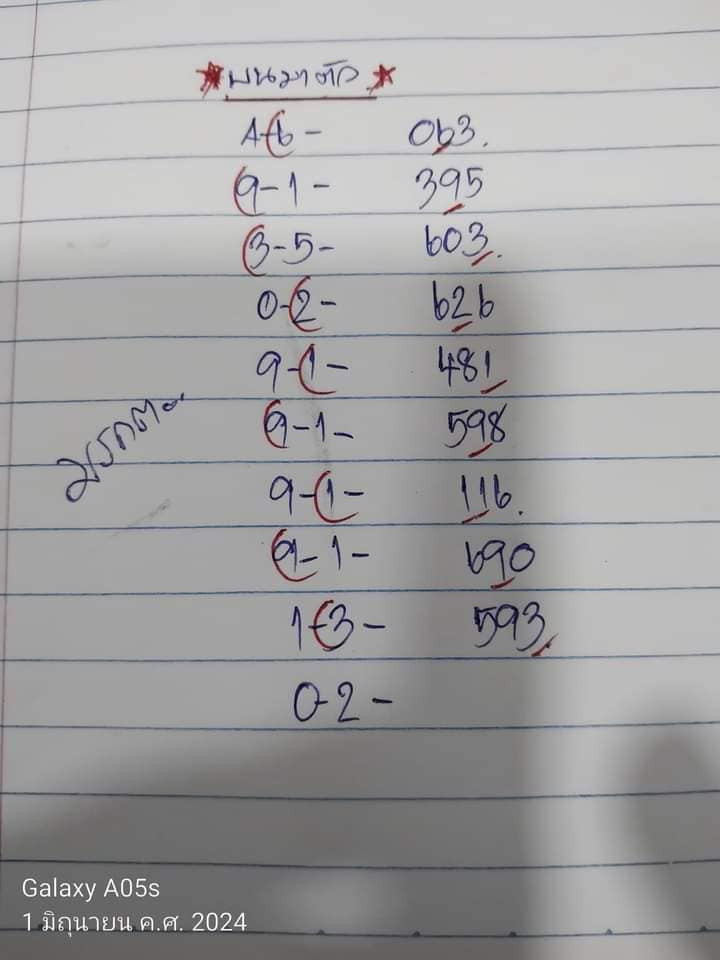 บนมาตัว
4-6- 063.
9-1- 395
3-5- 603.
0-2- 626
9-1- 481
9-1- 598
9-1- 116.
9-1- 690
1-3- 593.
0-2-
Galaxy A05s
1 มิถุนายน ค.ศ. 2024